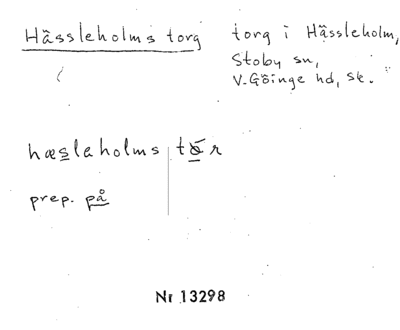 Hässleholms torg
torg i Hässleholm,
Stoby sn,
V. Göinge hd, Sk.
hæslaholms tɔr
prep. på
Nr 13298